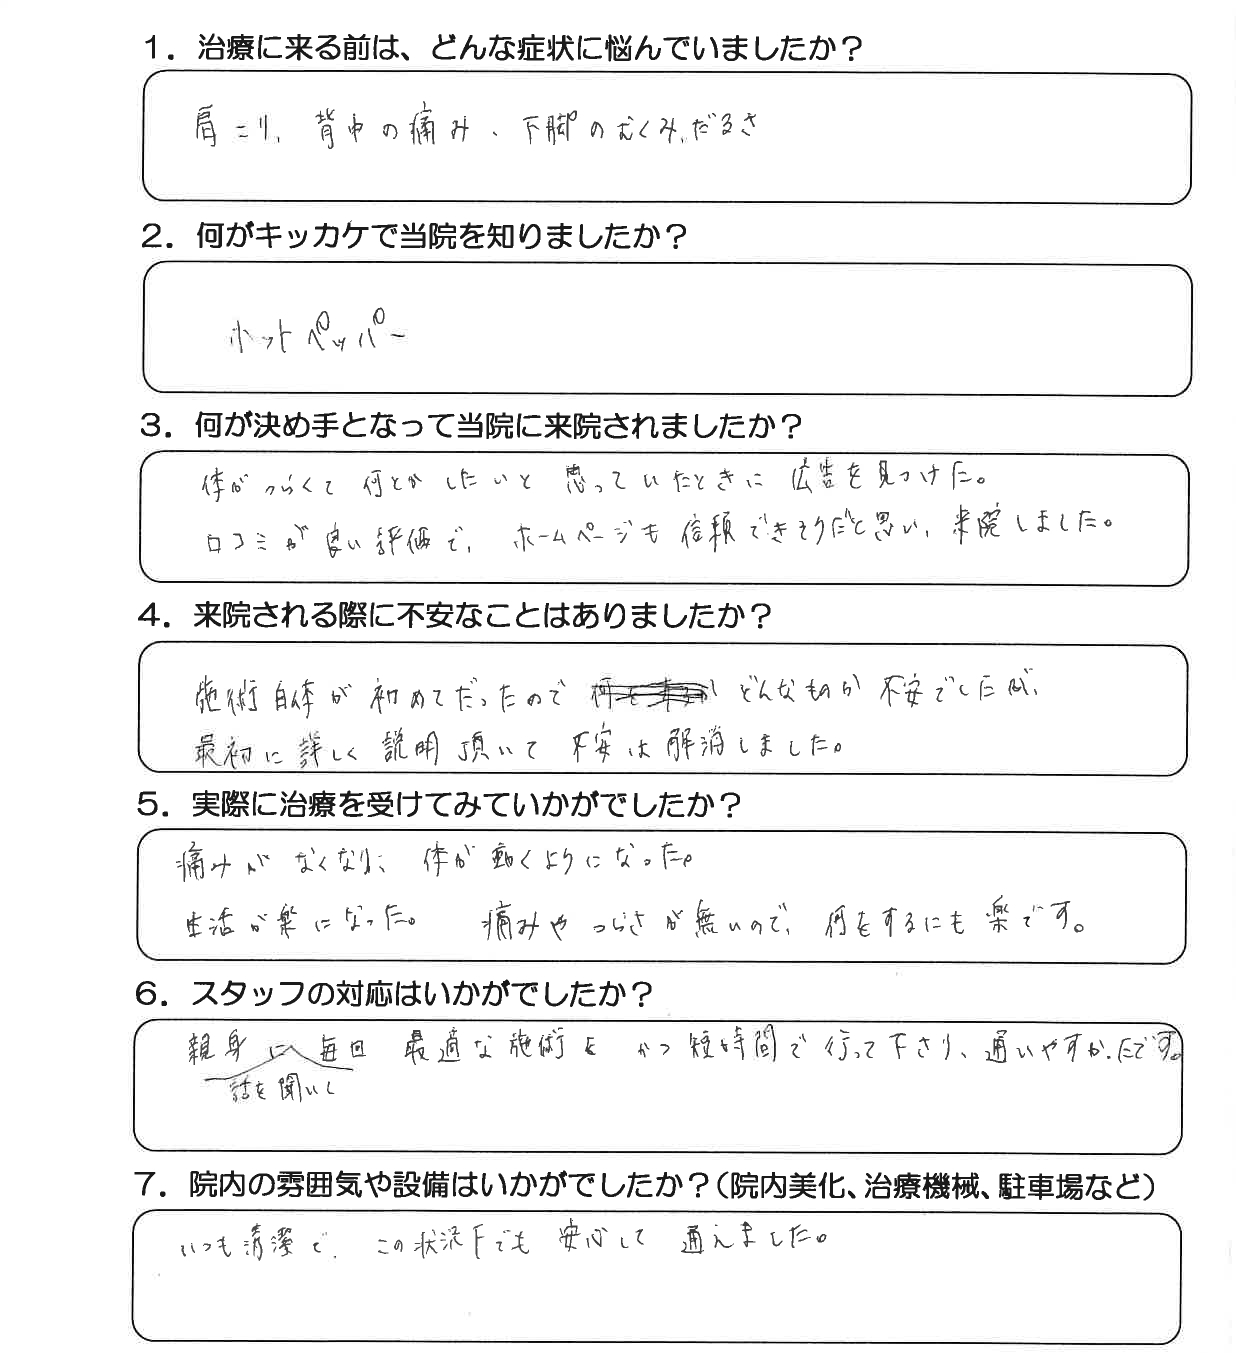 1．治療に来る前は、どんな症状に悩んでいましたか？
肩こり、背中の痛み、下脚のむくみ、だるさ
2．何がキッカケで当院を知りましたか？
ホットペッパー
3．何が決め手となって当院に来院されましたか？
体がつらくて何とかしたいと思っていたときに広告を見つけた。
口コミが良い評価で、ホームページも信頼できそうだと思い、来院しました。
4．来院される際に不安なことはありましたか？
施術自体が初めてだったのでどんなものか不安でしたが、
最初に詳しく説明頂いて不安は解消しました。
5．実際に治療を受けてみていかがでしたか？
痛みがなくなり、体が動くようになった。
生活が楽になった。 痛みやつらさが無いので、何をするにも楽です。
6．スタッフの対応はいかがでしたか？
親身に毎回最適な施術をかつ短時間で行って下さり、通いやすかったです。
話を聞いて
7．院内の雰囲気や設備はいかがでしたか？（院内美化、治療機械、駐車場など）
いつも清潔で、この状況下でも安心して通えました。